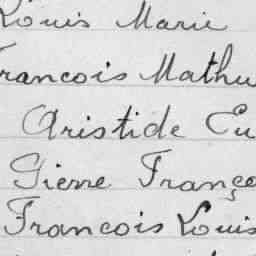 Louis Marie
Francois Mathu
Aristide Eu
Pierre Franço
Francois Louis